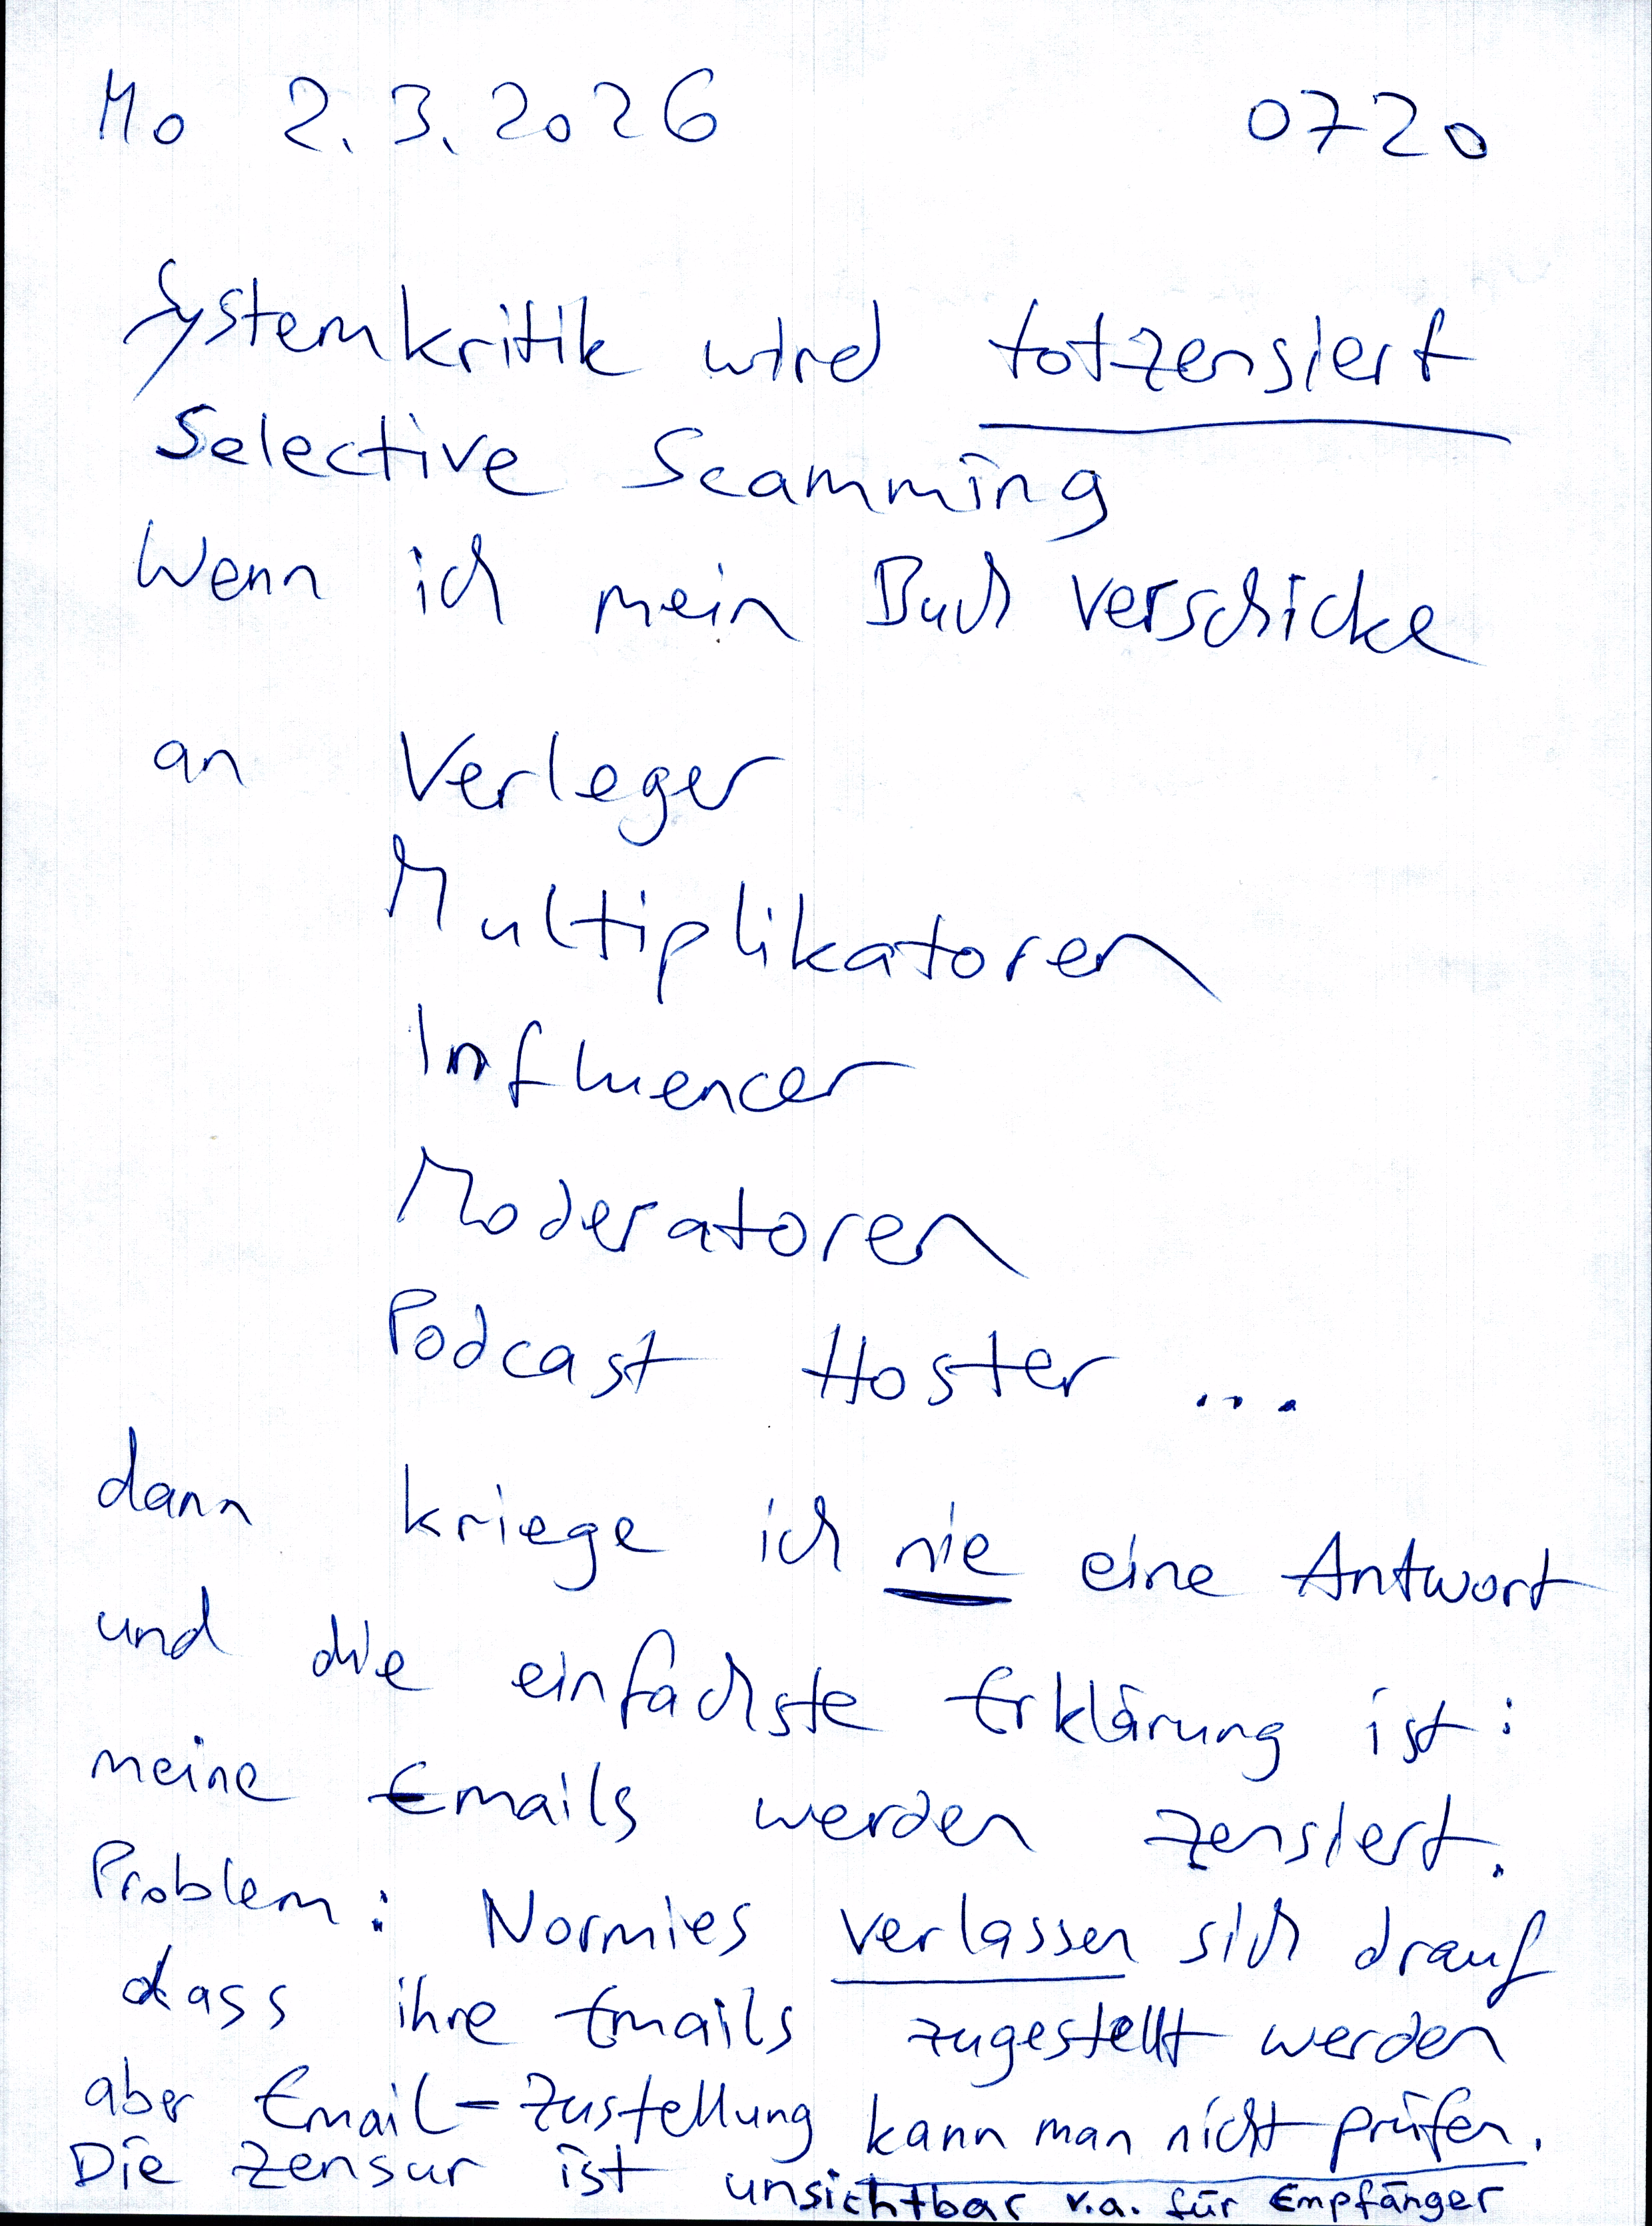 Mo 2.3.2026 0720
Systemkritik wird totzensiert
Selective Scamming
Wenn ich mein Buch verschicke
an Verleger
Multiplikatoren
Influencer
Moderatoren
Podcast Hoster ...
dann kriege ich nie eine Antwort
und die einfachste Erklärung ist:
meine Emails werden zensiert.
Problem: Normies verlassen sich drauf
dass ihre Emails zugestellt werden
aber Email-Zustellung kann man nicht prüfen.
Die Zensur ist unsichtbar v.a. für Empfänger